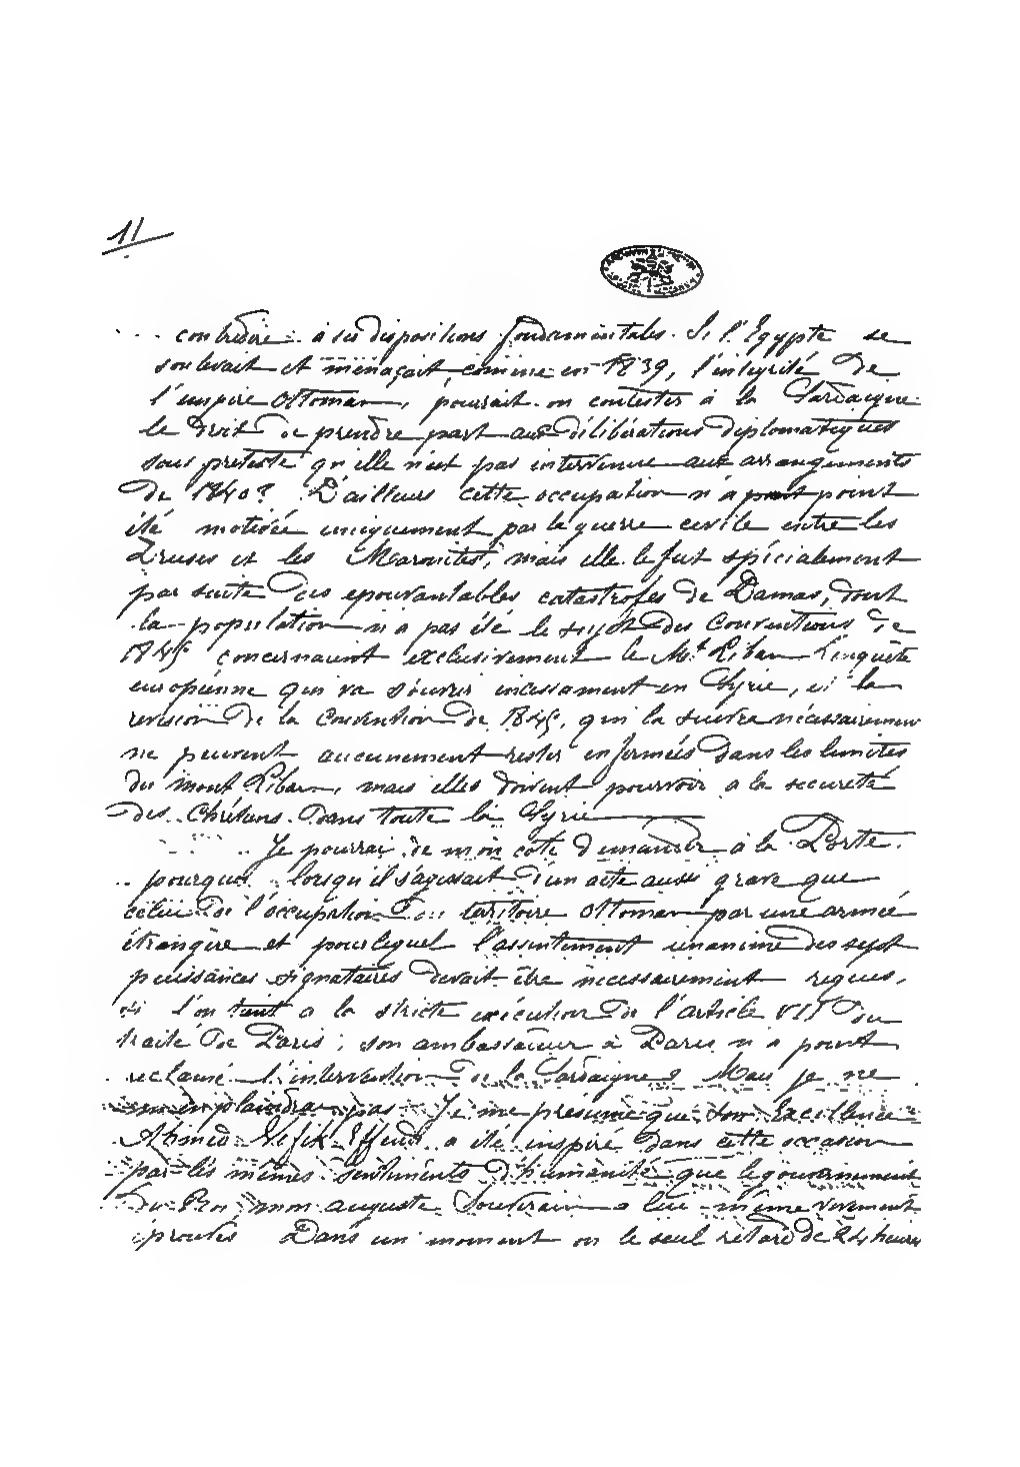 11
contredire à ses dispositions fondamentales. Si l'Egypte se
soulevait et menaçait, comme en 1839, l'integrité de
l'empire Ottoman, pourrait-on contester à la Sardaigne
le droit de prendre part aux délibérations diplomatiques
sous pretexte qu'elle n'est pas intervenue aux arrangements
de 1840? D'ailleurs cette occupation n'a point
été motivée uniquement par la guerre civile entre les
Druses et les Maronites, mais elle le fut spécialement
par suite des epouvantables catastrofes de Damas, dont
la population n'a pas été le sujet des Conventions de
1845 concernaient exclusivement le Mt Liban L'enquête
européenne qui va s'ouvrir incessament en Syrie, et la
revision de la Convention de 1845, qui la suivra nécessairement
ne peuvent aucunement rester enfermées dans les limites
du mont Liban, mais elles doivent pourvoir a la secureté
des Chrétiens dans toute la Syrie
Je pourrai de mon coté demander à la Porte
pourquoi lorsqu'il s'agissait d'un acte aussi grave que
celui de l'occupation du territoire Ottoman par une armée
étrangère et pour lequel l'assentiment unanime des sept
puissances signataires devait être necessairement reques,
si l'on tient a la stricte exécution de l'article VII du
traité de Paris, son ambassadeur à Paris n'a point
reclamé l'intervention de la Sardaigne? Mais je ne
m'en plaindrai pas Je me presume que Son Excellence
Ahmed Vefik Effendi a été inspiré dans cette occasion
par les mêmes sentiments d'humanité que le gouvernement
du Roi mon auguste Souverain a lui-même vivement
éprouvés Dans un moment ou le seul retard de 24 heures